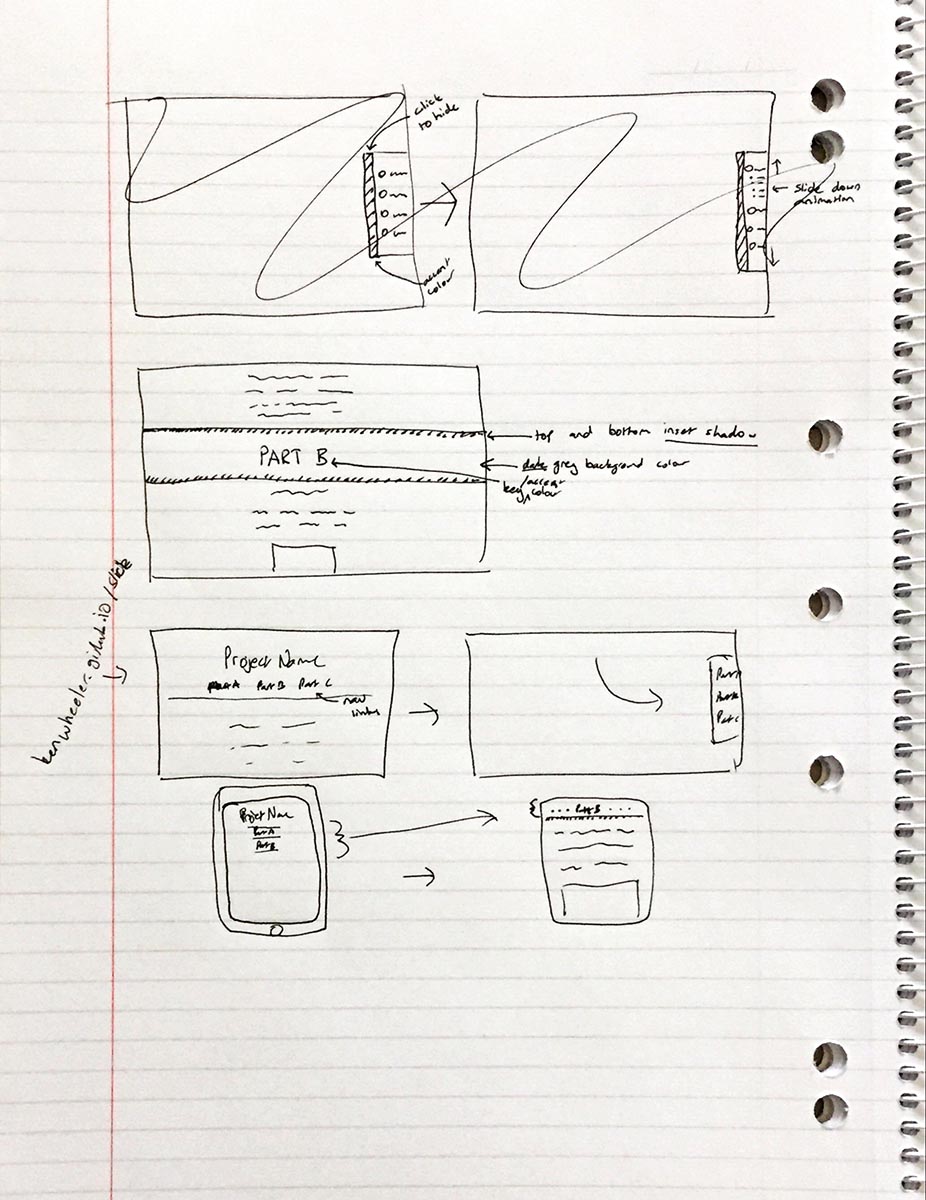 click
to hide
accent
colour
slide down
animation
top and bottom inset shadow
PART B
grey background color
key/accent
colour
kenwheeler.github.io/slick
Project Name
Part A Part B Part C
nav
links
Part A
Part B
Part C
Project Name
Part A
Part B
Part B